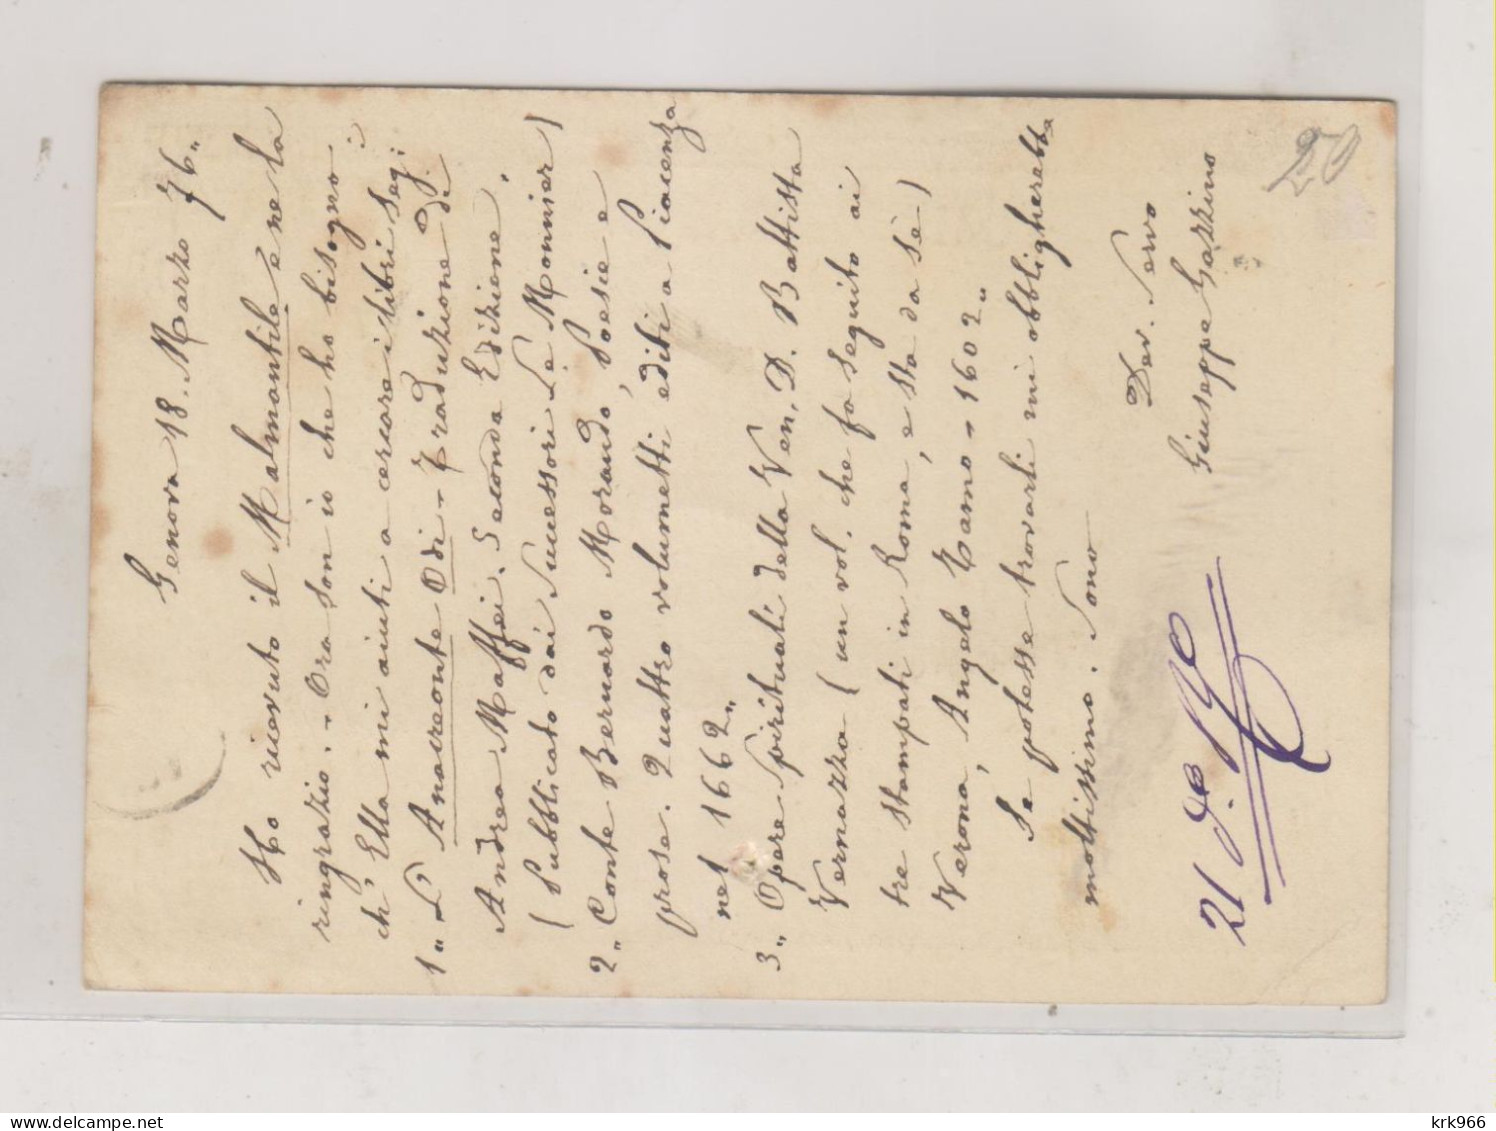 Genova 18. Marzo 76„
Ho ricevuto il Malmantile e ne La
ringrazio. – Ora son io che ho bisogno
ch' Ella mi aiuti a cercare i libri seg:i
1„ L' Anacreonte Odi – Traduzione di
Andrea Maffei. Seconda Edizione.
(Pubblicato dai Successori Le Monnier)
2„ Conte Bernardo Morando, Poesie e
prose. Quattro volumetti editi a Piacenza
nel 1662„
3„ Opere Spirituali della Ven. D. Battista
Vernazza (un vol. che fa seguito ai
tre stampati in Roma, e sta da sè)
Verona, Angelo Tamo – 1602„
Se potesse trovarli mi obbligherebbe
moltissimo. Sono
Dev. Servo
Giuseppe Gazzino
20
21 do
krk966